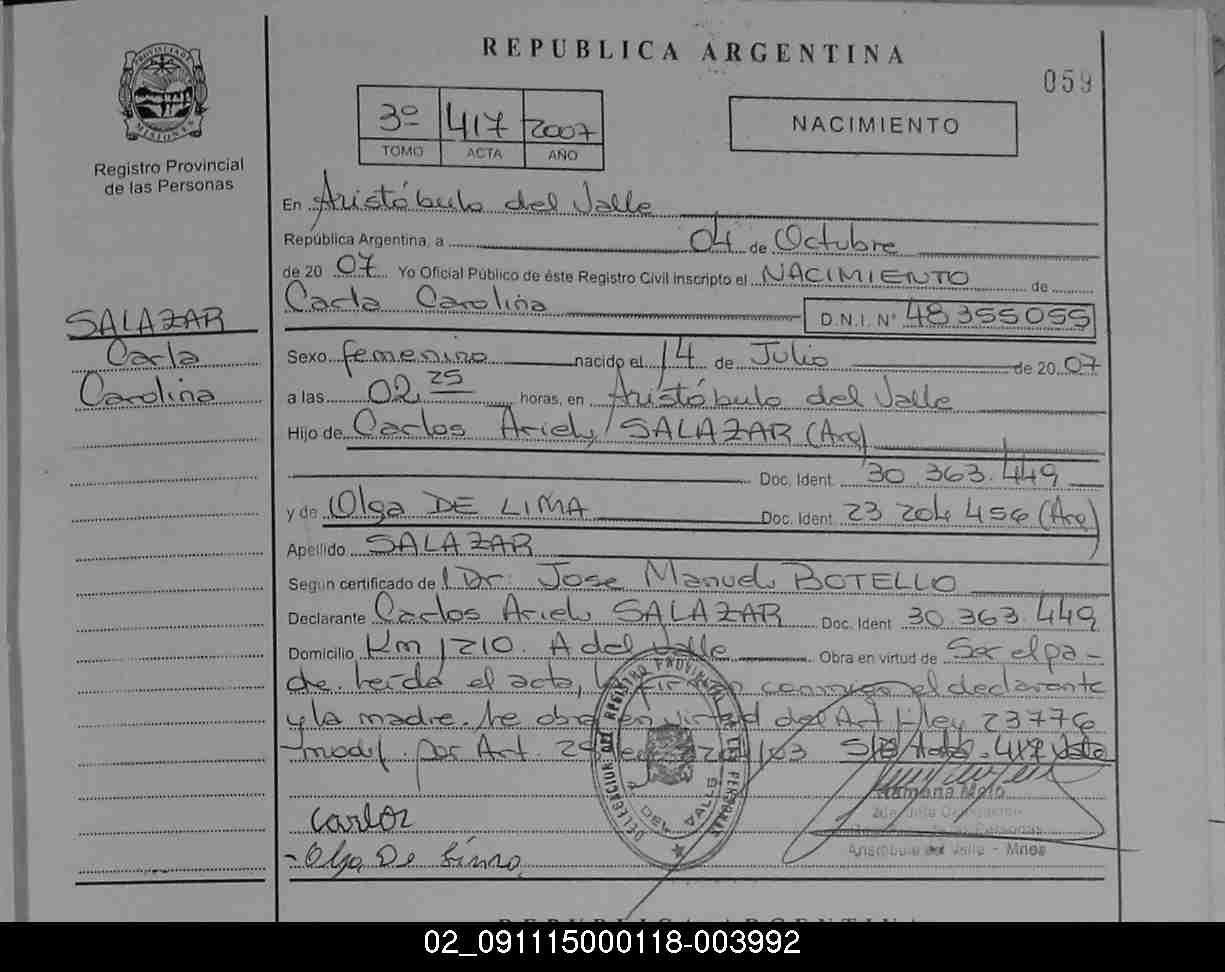 REPUBLICA ARGENTINA
059
PROVINCIA DE
MISIONES
Registro Provincial
de las Personas
3º 417 2007
TOMO ACTA AÑO
NACIMIENTO
En Aristóbulo del Valle
República Argentina, a 04 de Octubre
de 20 07 Yo Oficial Público de éste Registro Civil inscripto el NACIMIENTO de
Carla Carolina D.N.I. Nº 48355055
SALAZAR
Carla
Carolina
Sexo femenino nacido el 14 de Julio de 20 07
a las 02 25 horas, en Aristóbulo del Valle
Hijo de Carlos Ariel SALAZAR (Arg)
Doc. Ident. 30.363.449
y de Olga DE LIMA Doc. Ident 23 204 456 (Arg)
Apellido SALAZAR
Según certificado de l Dr. Jose Manuel BOTELLO
Declarante Carlos Ariel SALAZAR Doc. Ident 30.363.449
Domicilio Km 1210. A del Valle Obra en virtud de Ser el pa-
dre. Leída el acta, la firman conmigo el declarante
y la madre. Se obra en virtud del Art 1 ley 23776
modif. por Art. 29 ley
417 Vale
Carlos
Olga De Lima
DELEGACION DEL REGISTRO PROVINCIAL DE LAS PERSONAS
DEL VALLE
Ramona Melo
Aristóbulo del Valle - Mnes
REPUBLICA ARGENTINA
02_091115000118-003992